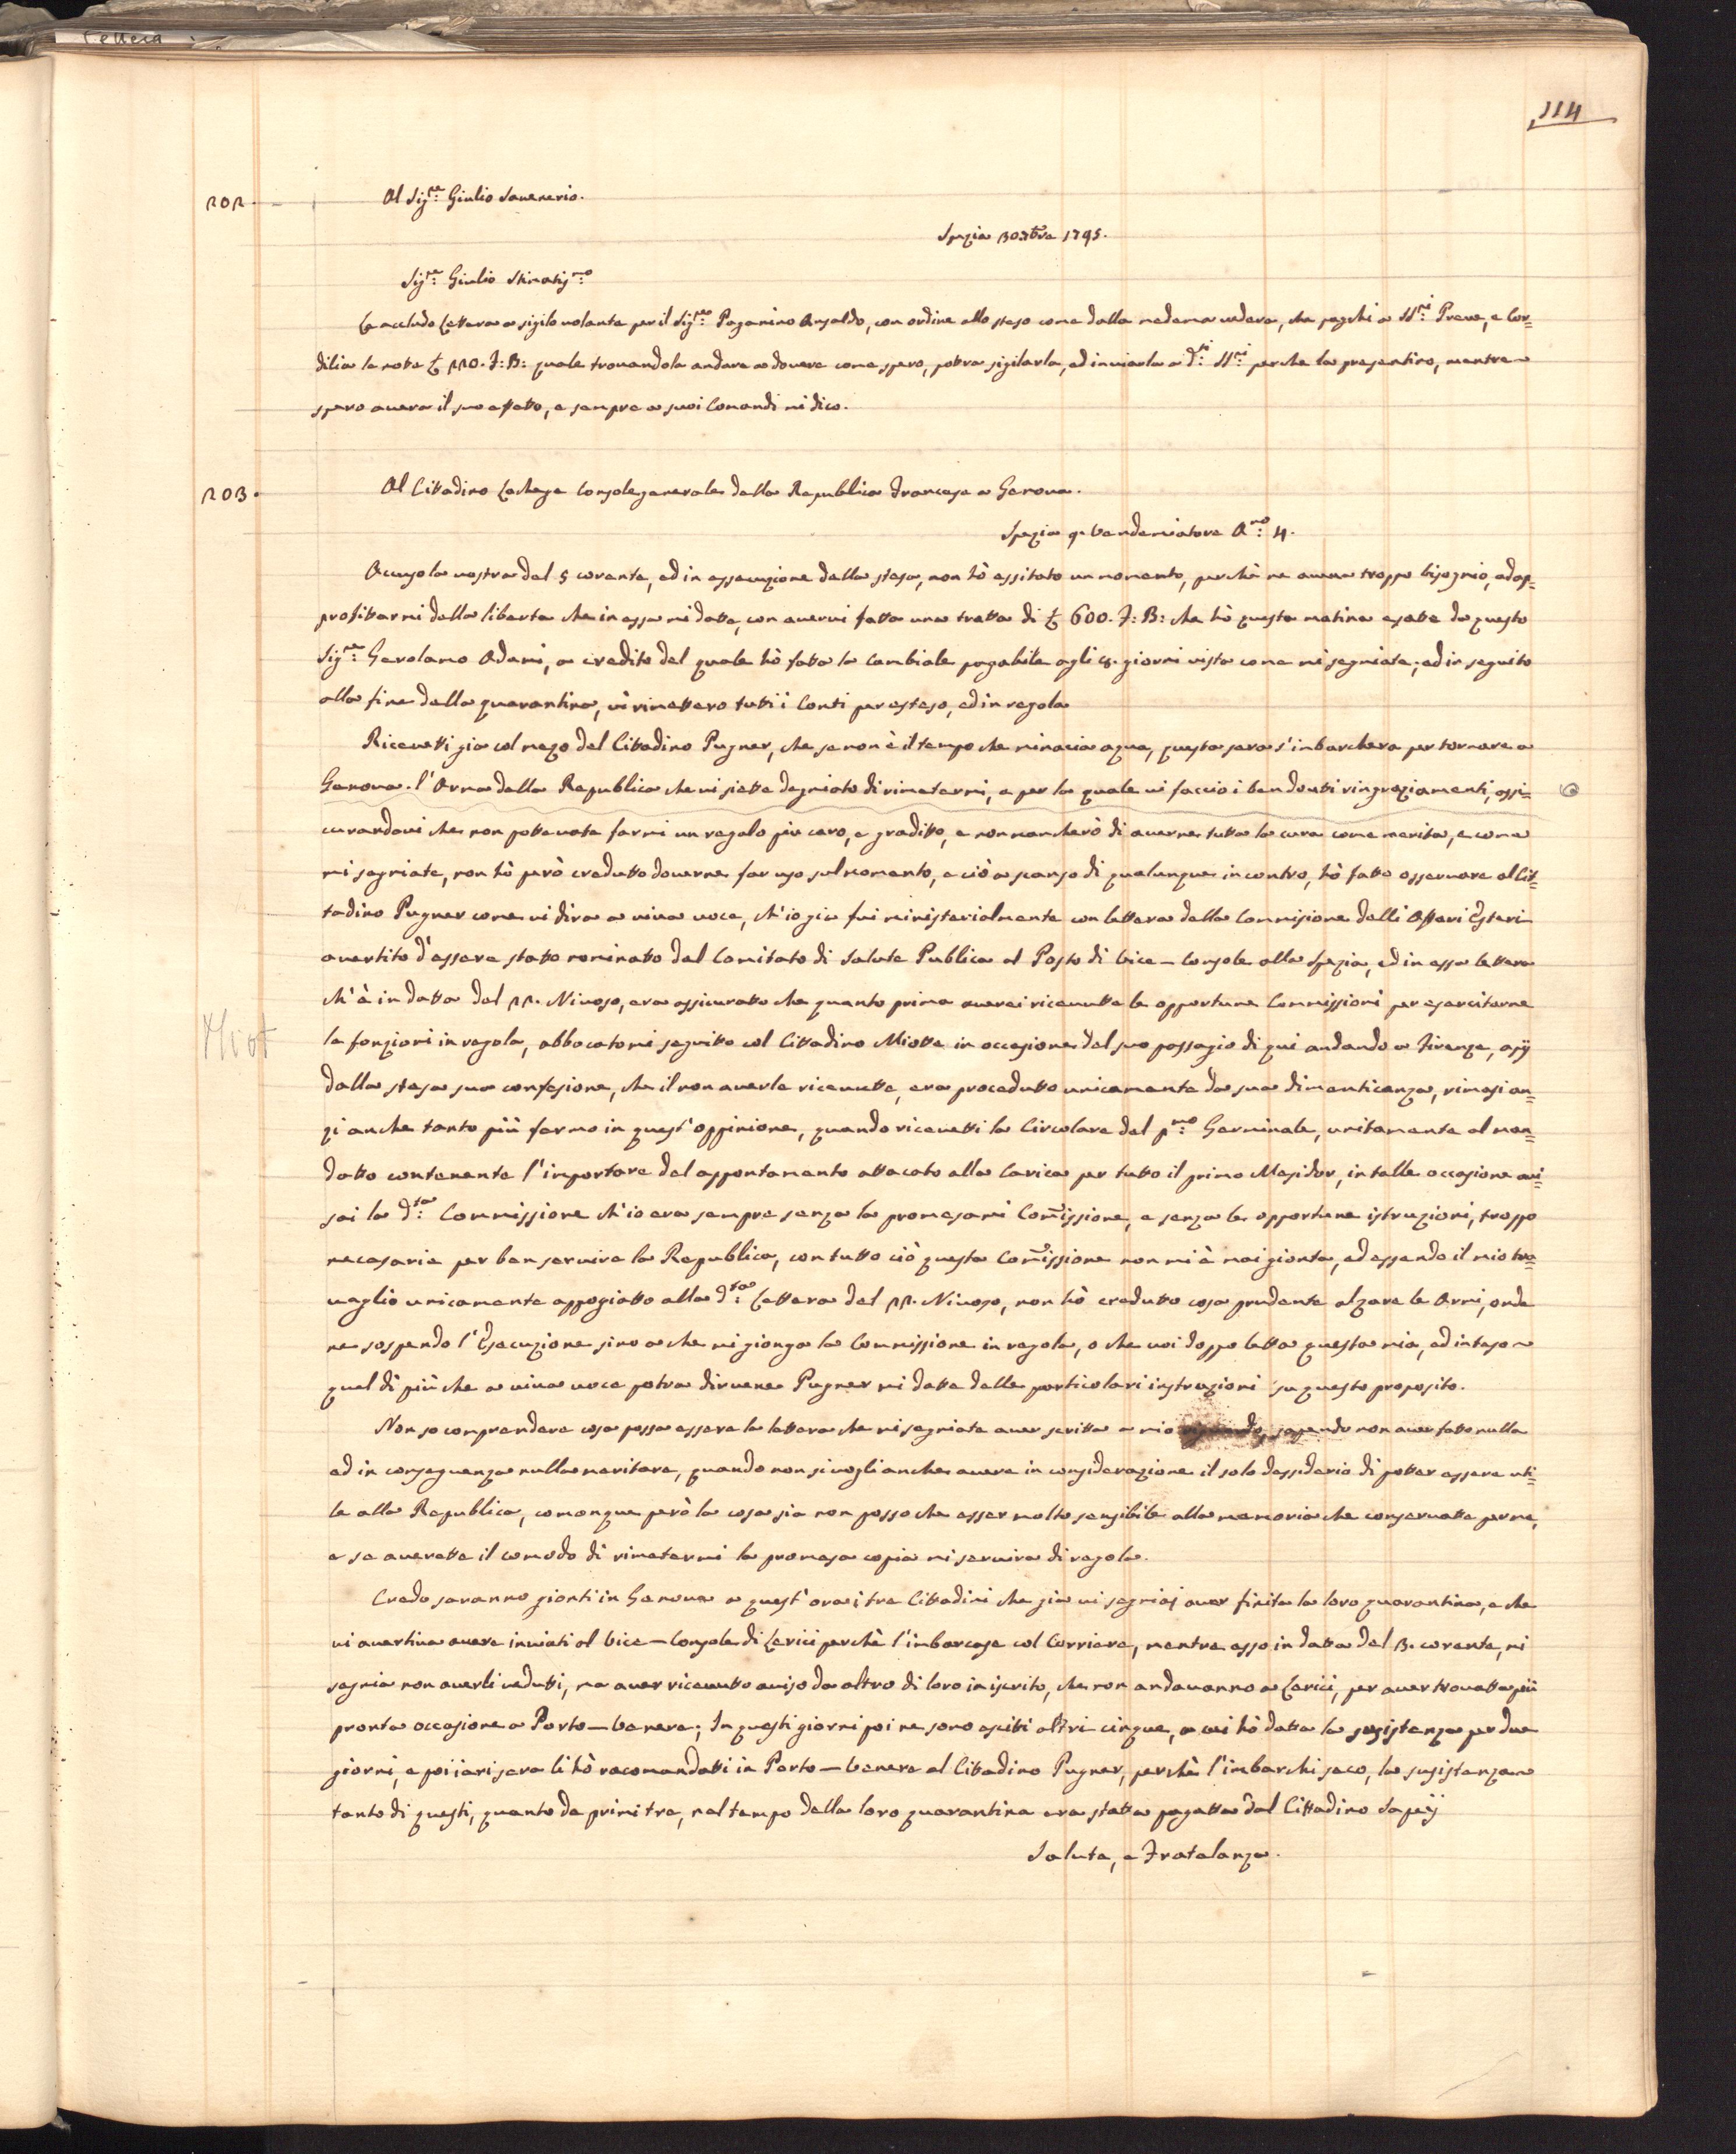 Lettera
114
202. Al Sig.re Giulio Sanenerio.
Spezia 30 7bre 1795.
Sig.re Giulio Stimatis.mo
Le accludo Lettera a sigilo volante per il Sig.re Paganino Ansaldo, con ordine allo steso come dalla medema vedera, che paghi a SS.ri Preve, e Cor=
dilia le note £ 220. F: B: quale trovandola andare a dovere come spero, potra sigilarla, ed inviarla a d.ti SS.ri perche la presentino, mentre
spero avera il suo effetto, e sempre a suoi Comandi mi dico.
203. Al Cittadino Lacheze Console generale della Republica Francese a Genova.
Spezia 9. Vendemiatore A.no 4.
Accuso la vostra del 5 corente, ed in essecuzione della stesa, non hò essitato un momento, perchè ne aveva troppo bisognio, ad ap=
profittarmi della liberta che in essa mi datte, con avervi fatta una tratta di £ 600. F: B: che hò questa matina esatte da questo
Sig.re Gerolamo Adami, a credito del quale hò fatta la Cambiale pagabile agli 8. giorni vista come mi segniate; ed in seguito
alla fine della quarantina, vi rimettero tutti i Conti per esteso, ed in regola
Ricevetti gia col mezo del Cittadino Pugner, che se non è il tempo che minacia aqua, questa sera s'imbarchera per tornare a
Genova. l'Arma della Republica che mi siette degniato di rimetermi, e per la quale vi faccio i ben douti ringraziamenti, assi=
curandovi che non pottevate farmi un regalo più caro, e gradito, e non mancherò di averne tutta la cura come merita, e come
mi segniate, non hò però creduto doverne far uso sul momento, e ciò a scanso di qualunque incontro, hò fatto osservare al Cit=
tadino Pugner come vi dira a viva voce, ch'io gia fui ministerialmente con lettera della Commisione delli Affari Esteri
avertito d'essere stato nominatto dal Comitato di Salute Publica al Posto di Vice-Console alla Spezia, ed in essa lettera
ch'è in datta del 22. Nivoso, era assicuratto che quanto prima averei ricevutte le opportune Commissioni per esercitarne
Miot
le fonzioni in regola, abbocatomi seguitto col Cittadino Miotte in occasione del suo passagio di qui andando a Firenze, asij
dalla stesa sua confesione, che il non averle ricevutte, era procedutto unicamente da sua dimenticanza, rimasi an=
zi anche tanto più fermo in quest'oppinione, quando ricevetti la Circolare del p.mo Germinale, unitamente al man=
datto contenente l'importare del appontamento attacato alla Carica per tutto il primo Mesidor, in talle occasione avi=
sai la d.ta Commissione ch'io era sempre senza la promesami Commissione, e senza le opportune istruzioni, troppo
necesarie per ben servire la Republica, con tutto ciò questa Commissione non mi è mai gionta, ed essendo il mio tra=
vaglio unicamente appogiatto alla d.ta Lettera del 22. Nivoso, non hò creduto cosa prudente alzare le Armi, onde
ne sospendo l'Esecuzione sino a che mi gionga la Commissione in regola, o che voi doppo letta questa mia, ed inteso
quel di più che a viva voce potra dirvene Pugner mi datte delle particolari instruzioni su questo proposito.
Non so comprendere cosa possa essere la lettera che mi segniate aver scritta a mio riguardo, sapendo non aver fatto nulla
ed in conseguenza nulla meritare, quando non si vogli anche avere in considerazione il solo dessiderio di potter essere uti=
le alla Republica, comonque però la cosa sia non posso che esser molto sensibile alla memoria che conservatte per me,
e se averette il comodo di rimetermi la promesa copia mi servira di regola.
Credo saranno gionti in Genova a quest'ora i tre Cittadini che gia vi segniai aver finita la loro quarantina, e che
vi avertiva avere inviati al Vice-Console di Lerici perchè l'imbarcase col Corriere, mentre esso in datta del 3. corente, mi
segnia non averli veduti, ma aver ricevutto aviso da altro di loro in iscrito, che non andavanno a Lerici, per aver trovatta più
pronta occasione a Porto-Venere; In questi giorni poi ne sono asciti altri cinque, a cui hò datta la susistenza per due
giorni, e poi jeri sera li hò racomandatti in Porto-Venere al Cittadino Pugner, perchè l'imbarchi seco, la susistenza
tanto di questi, quanto de primi tre, nel tempo della loro quarantina era statta pagatta dal Cittadino Sapeij
Salute, e Fratelanza.